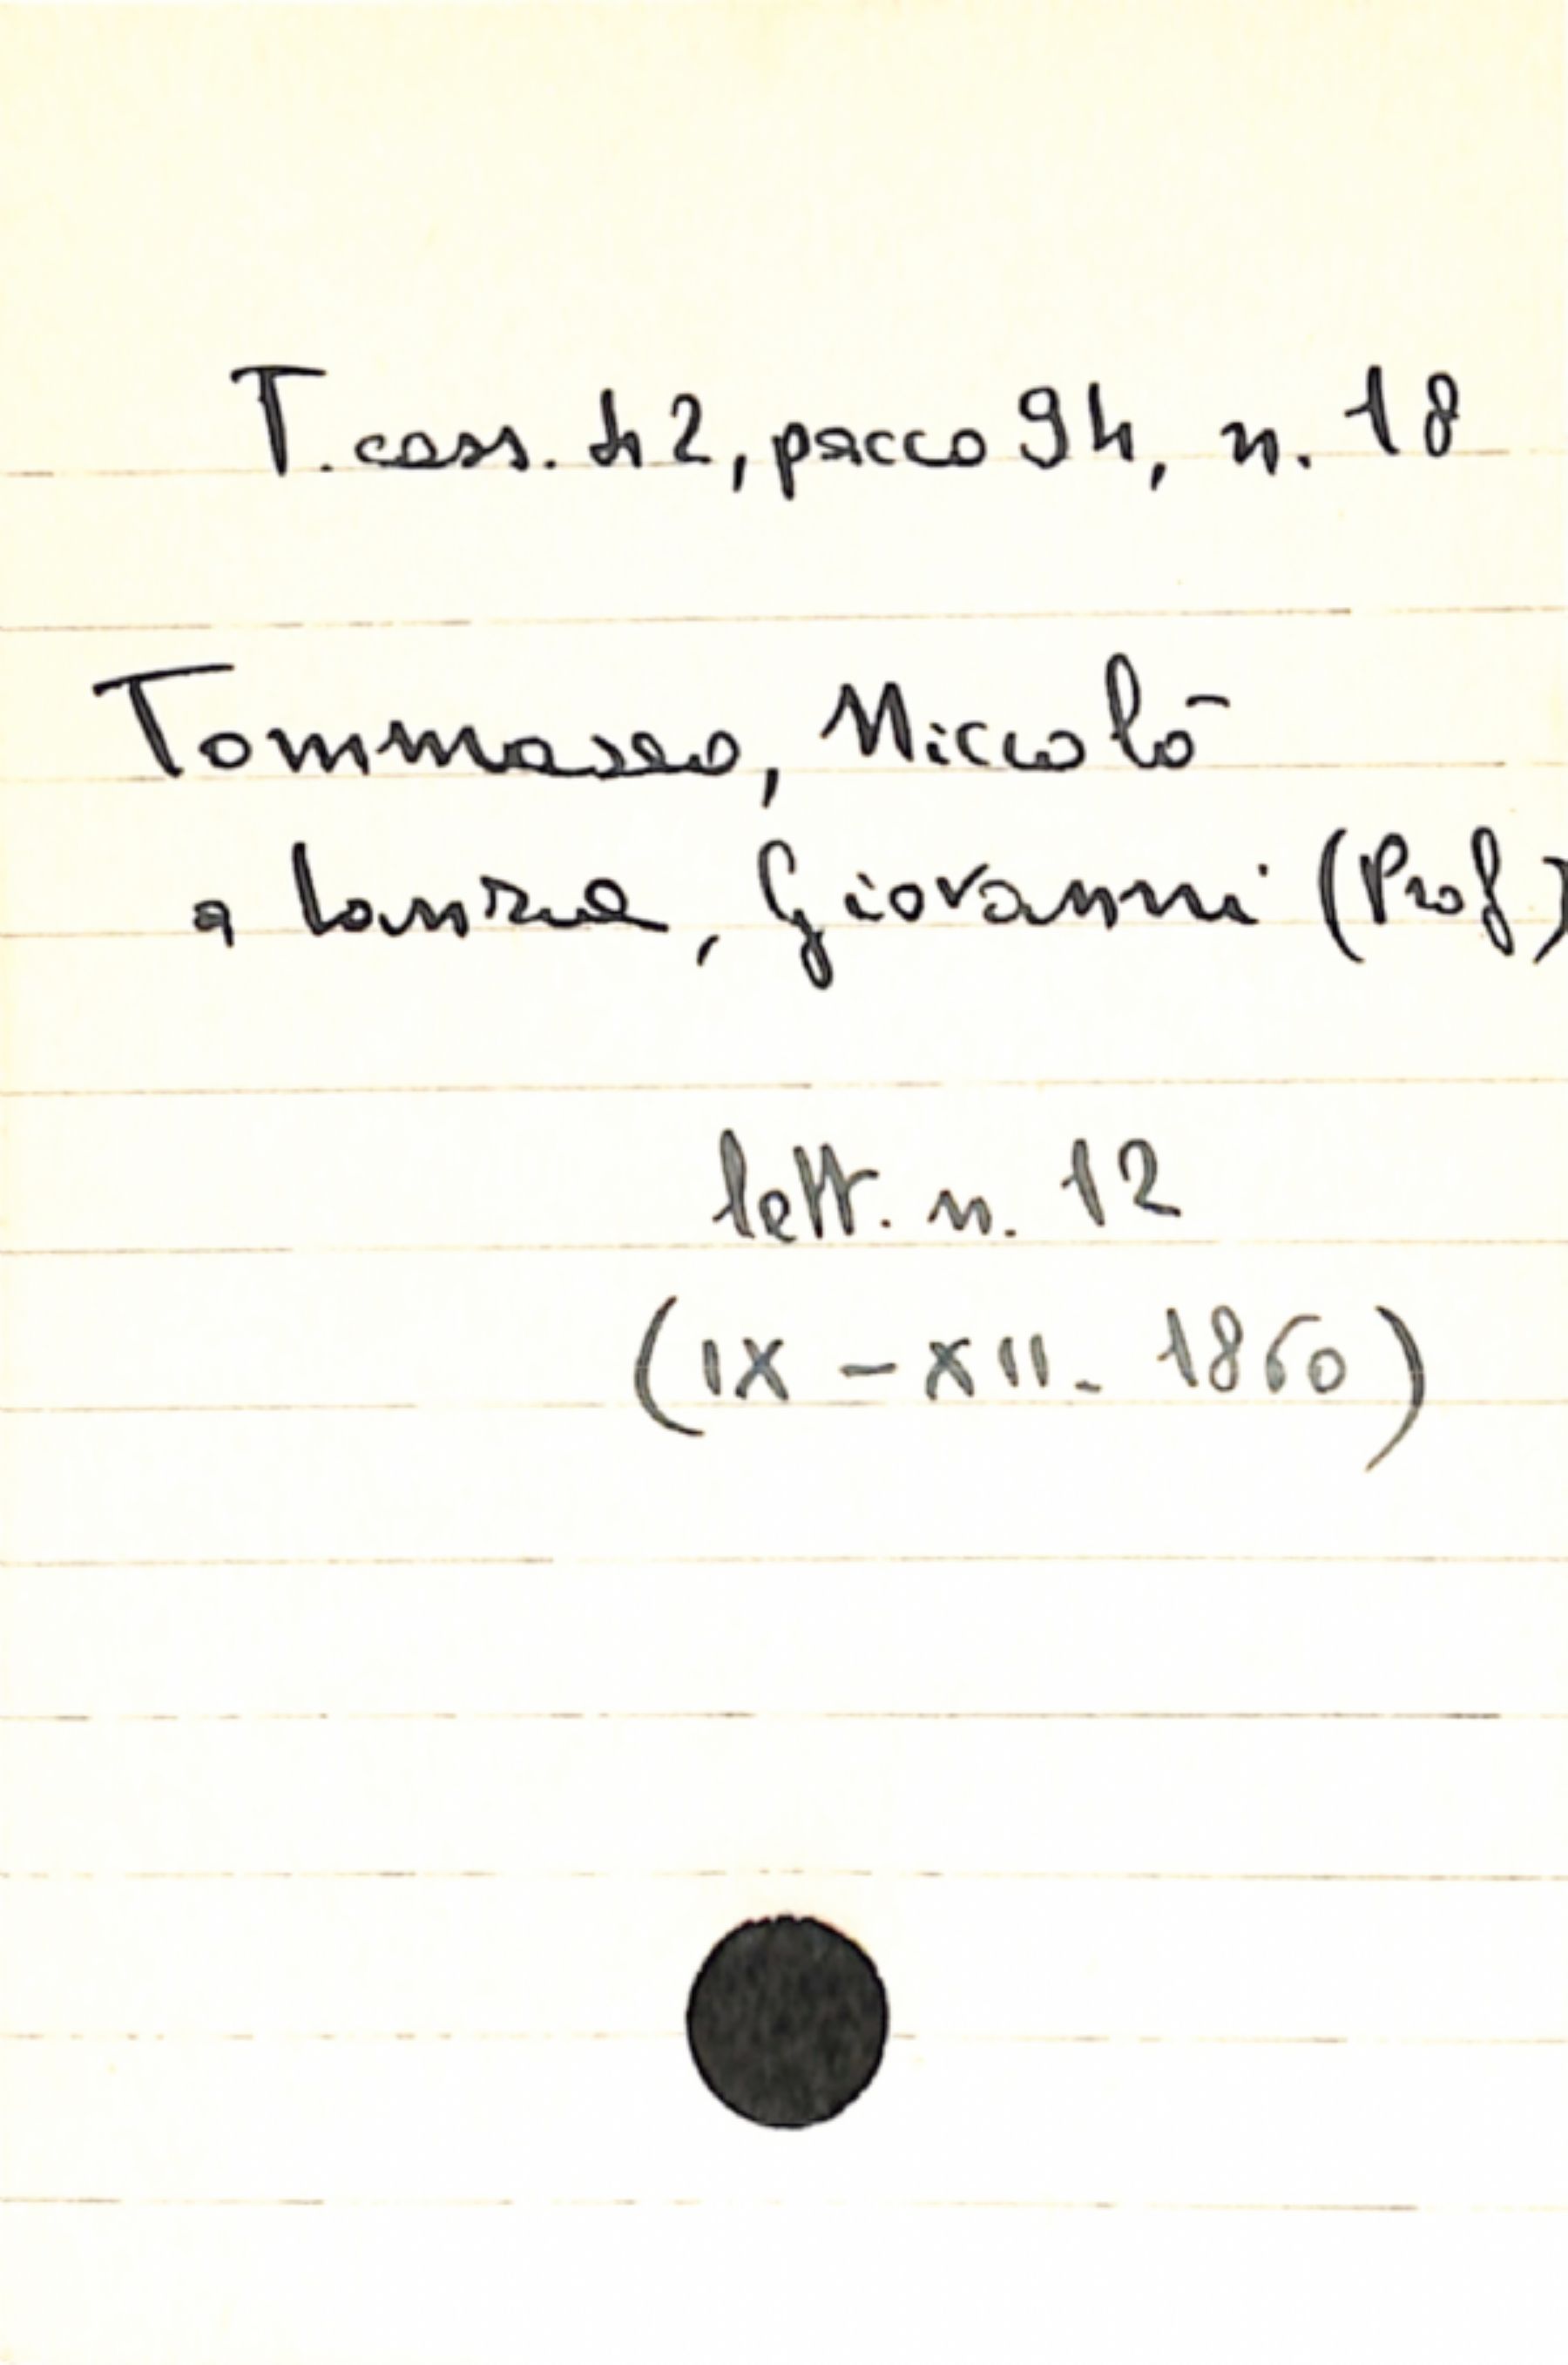 T. cass. 42, pacco 94, n. 18
Tommaseo, Niccolò
a Lanza, Giovanni (Prof)
lett. n. 12
(IX - XII. 1860)